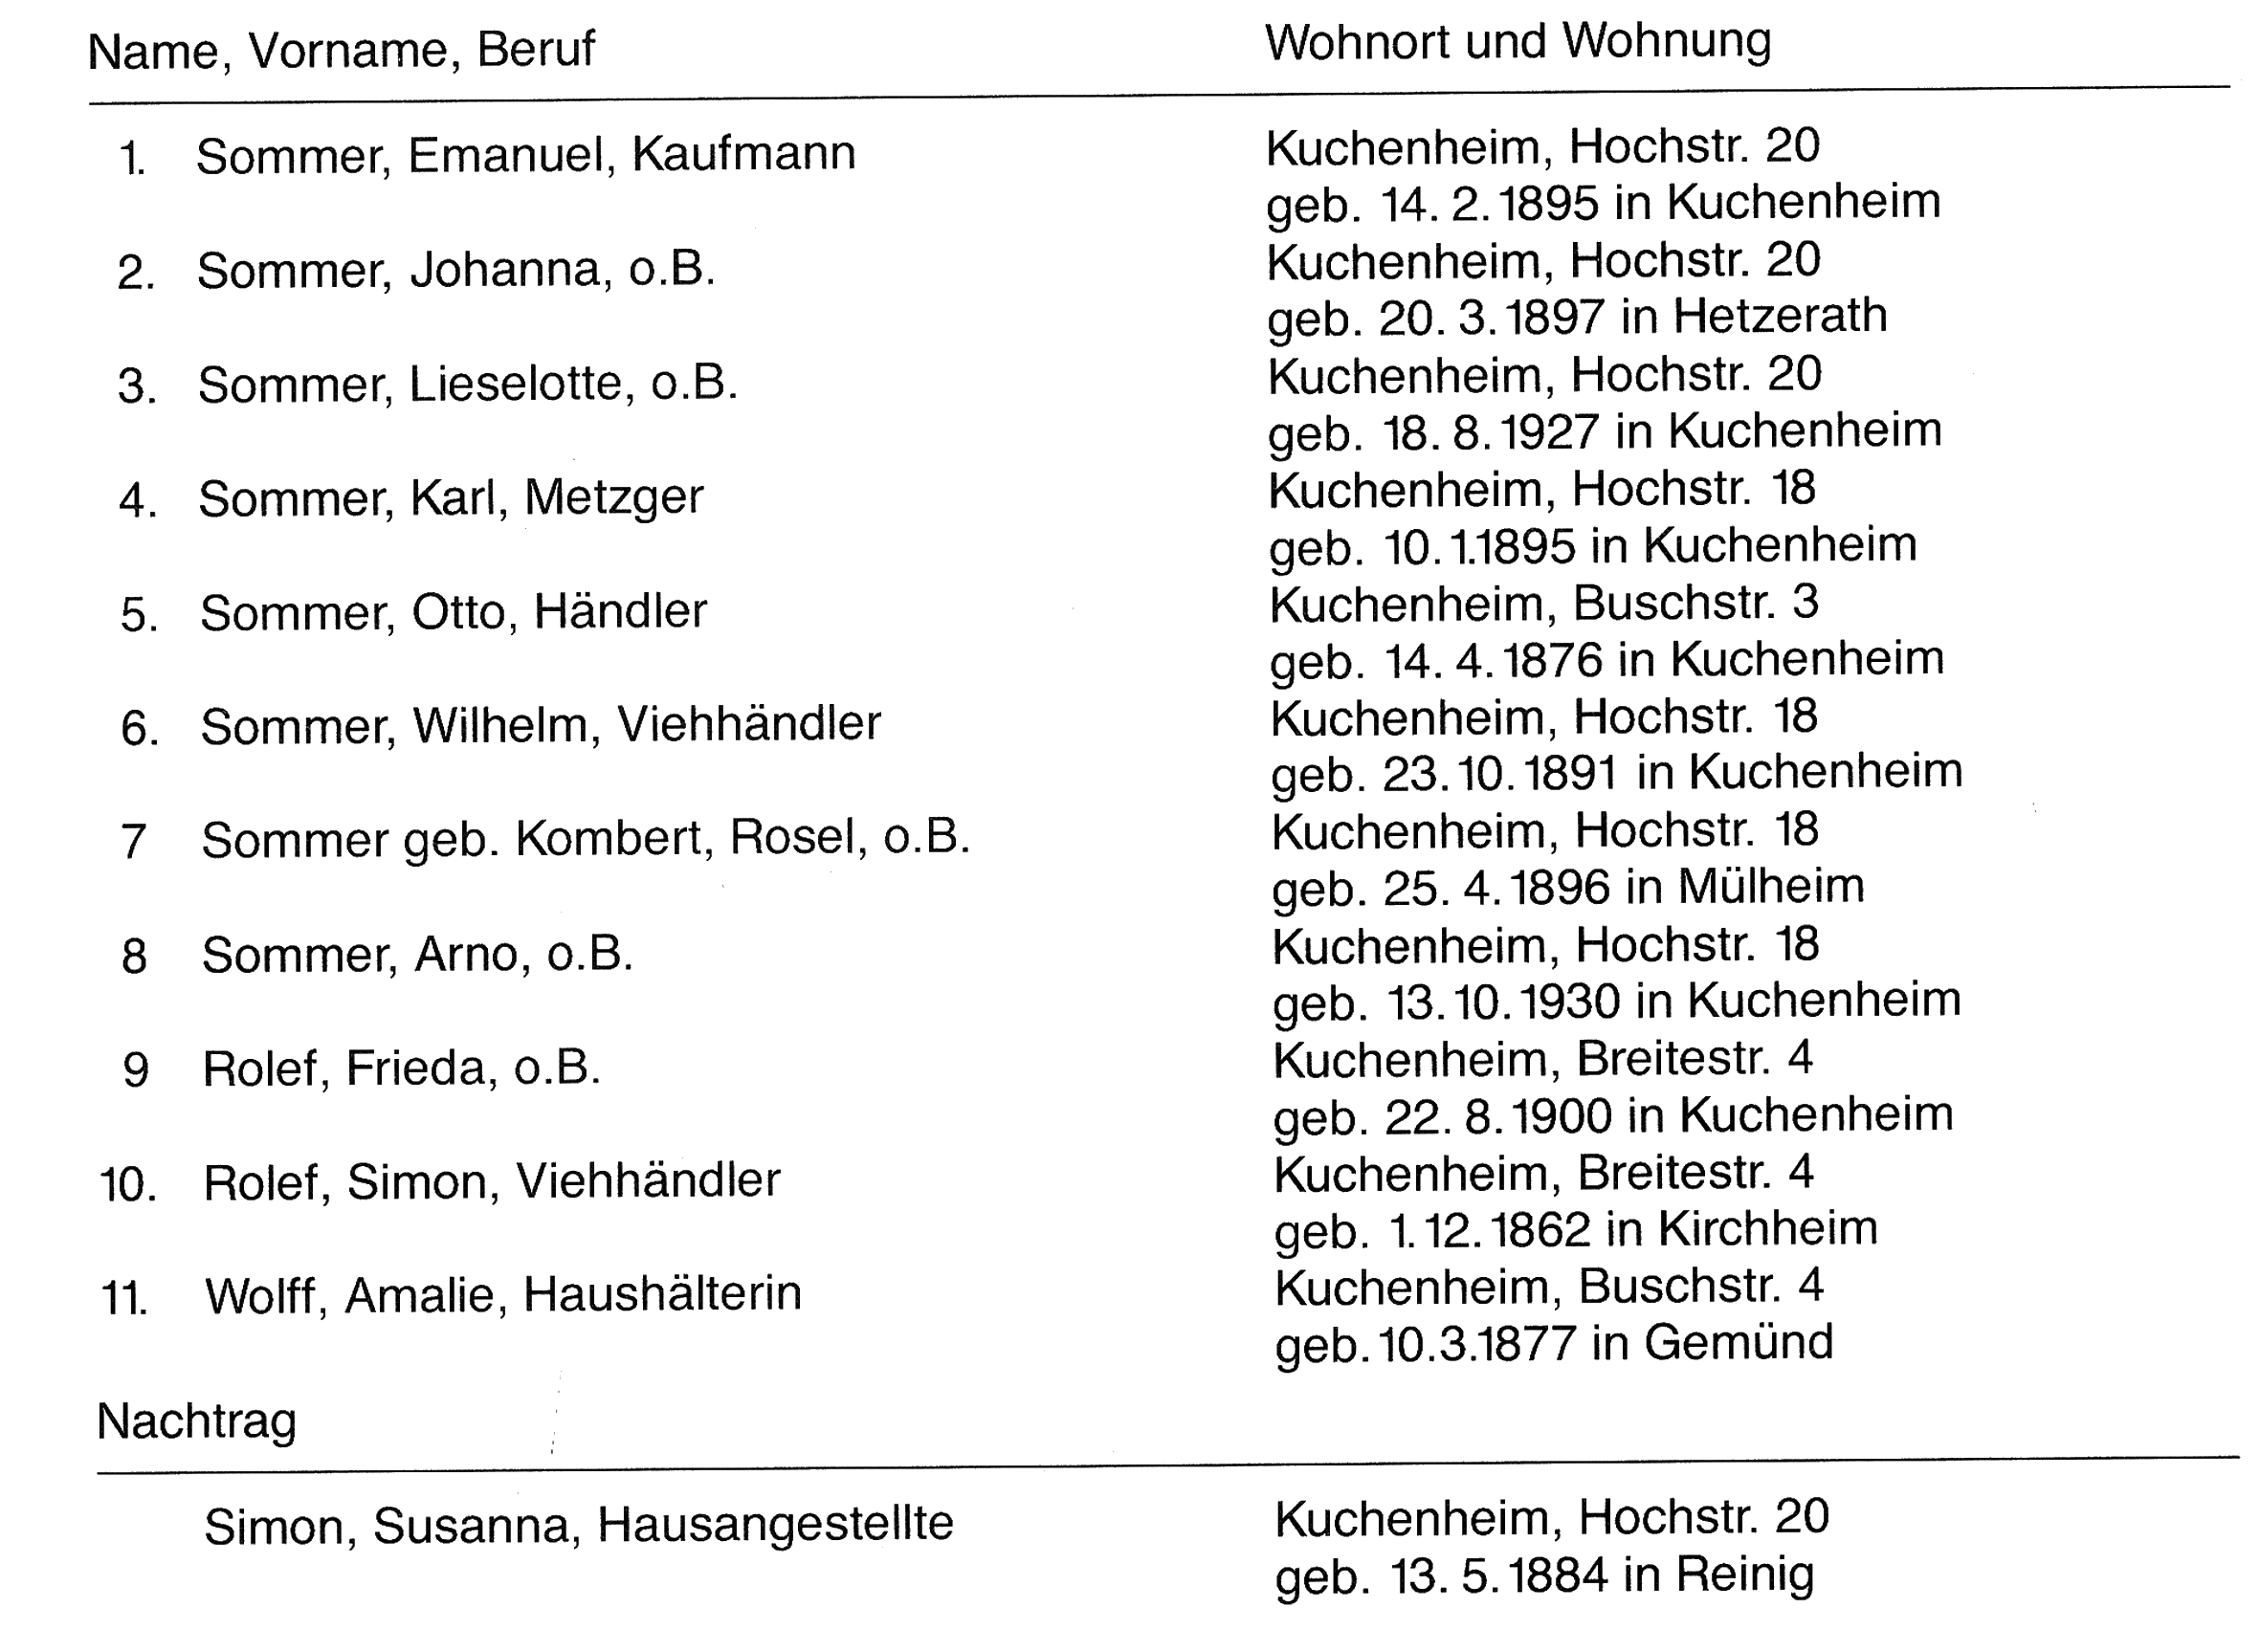 Name, Vorname, Beruf Wohnort und Wohnung
1. Sommer, Emanuel, Kaufmann Kuchenheim, Hochstr. 20
geb. 14. 2. 1895 in Kuchenheim
2. Sommer, Johanna, o.B. Kuchenheim, Hochstr. 20
geb. 20. 3. 1897 in Hetzerath
3. Sommer, Lieselotte, o.B. Kuchenheim, Hochstr. 20
geb. 18. 8. 1927 in Kuchenheim
4. Sommer, Karl, Metzger Kuchenheim, Hochstr. 18
geb. 10. 1.1895 in Kuchenheim
5. Sommer, Otto, Händler Kuchenheim, Buschstr. 3
geb. 14. 4. 1876 in Kuchenheim
6. Sommer, Wilhelm, Viehhändler Kuchenheim, Hochstr. 18
geb. 23. 10. 1891 in Kuchenheim
7 Sommer geb. Kombert, Rosel, o.B. Kuchenheim, Hochstr. 18
geb. 25. 4. 1896 in Mülheim
8 Sommer, Arno, o.B. Kuchenheim, Hochstr. 18
geb. 13. 10. 1930 in Kuchenheim
9 Rolef, Frieda, o.B. Kuchenheim, Breitestr. 4
geb. 22. 8. 1900 in Kuchenheim
10. Rolef, Simon, Viehhändler Kuchenheim, Breitestr. 4
geb. 1. 12. 1862 in Kirchheim
11. Wolff, Amalie, Haushälterin Kuchenheim, Buschstr. 4
geb. 10.3.1877 in Gemünd
Nachtrag
Simon, Susanna, Hausangestellte Kuchenheim, Hochstr. 20
geb. 13. 5. 1884 in Reinig